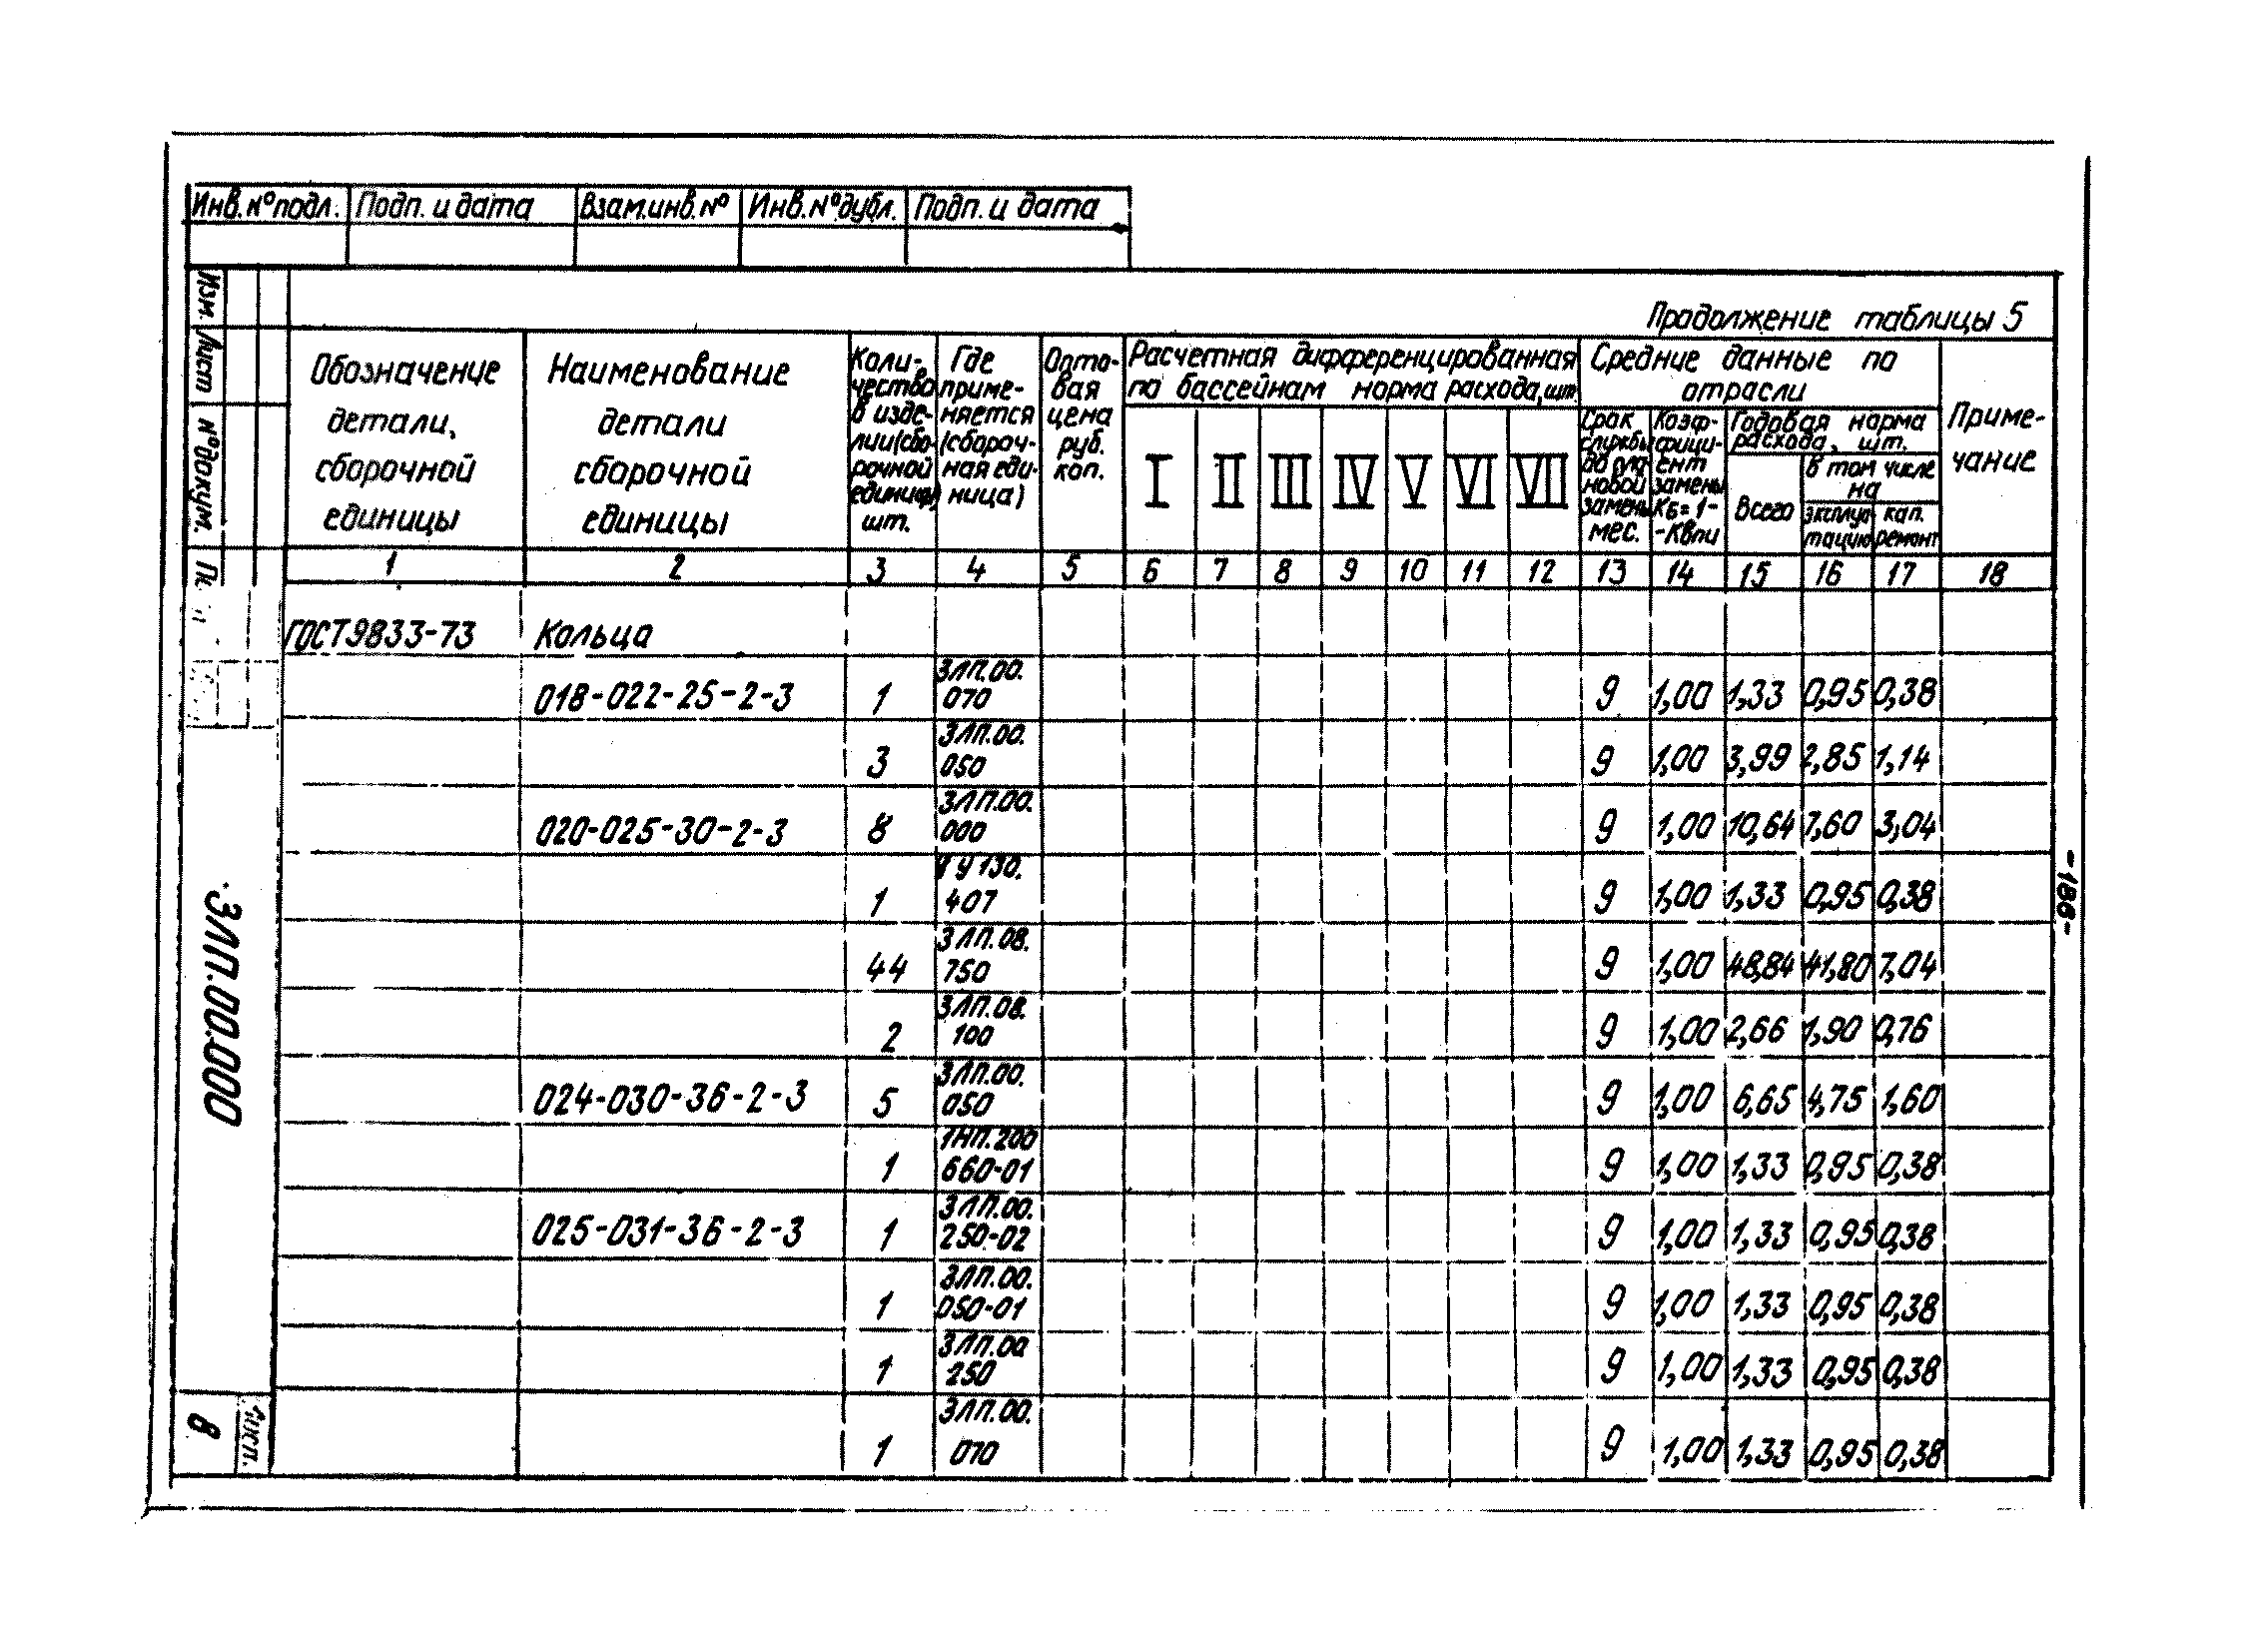 Инв.№подл. Подп. и дата Взам.инв.№ Инв.№дубл. Подп. и дата
Продолжение таблицы 5
Обозначение детали, сборочной единицы
Наименование детали сборочной единицы
Коли-чество в изде-лии(сбо-рочной единице) шт.
Где приме-няется (сбороч-ная еди-ница)
Опто-вая цена руб. коп.
Расчетная дифференцированная по бассейнам норма расхода, шт.
I II III IV V VI VII
Средние данные по отрасли
Срок службы до пла-новой замены мес.
Коэф-фици-ент замены Кб=1--Квпи
Годовая норма расхода, шт.
Всего
в том числе на
эксплуа-тацию
кап. ремонт
Приме-чание
1 2 3 4 5 6 7 8 9 10 11 12 13 14 15 16 17 18
ГОСТ9833-73 Кольца
018-022-25-2-3 1 3ЛП.00.070 9 1,00 1,33 0,95 0,38
3 3ЛП.00.050 9 1,00 3,99 2,85 1,14
020-025-30-2-3 8 3ЛП.00.000 9 1,00 10,64 7,60 3,04
1 У130.407 9 1,00 1,33 0,95 0,38
44 3ЛП.08.750 9 1,00 48,84 41,80 7,04
2 3ЛП.08.100 9 1,00 2,66 1,90 0,76
024-030-36-2-3 5 3ЛП.00.050 9 1,00 6,65 4,75 1,60
1 1НП.200 660-01 9 1,00 1,33 0,95 0,38
025-031-36-2-3 1 3ЛП.00.250-02 9 1,00 1,33 0,95 0,38
1 3ЛП.00.050-01 9 1,00 1,33 0,95 0,38
1 3ЛП.00 250 9 1,00 1,33 0,95 0,38
1 3ЛП.00.070 9 1,00 1,33 0,95 0,38
Изм. Лист №докум.
3ЛП.00.000
8
-186-